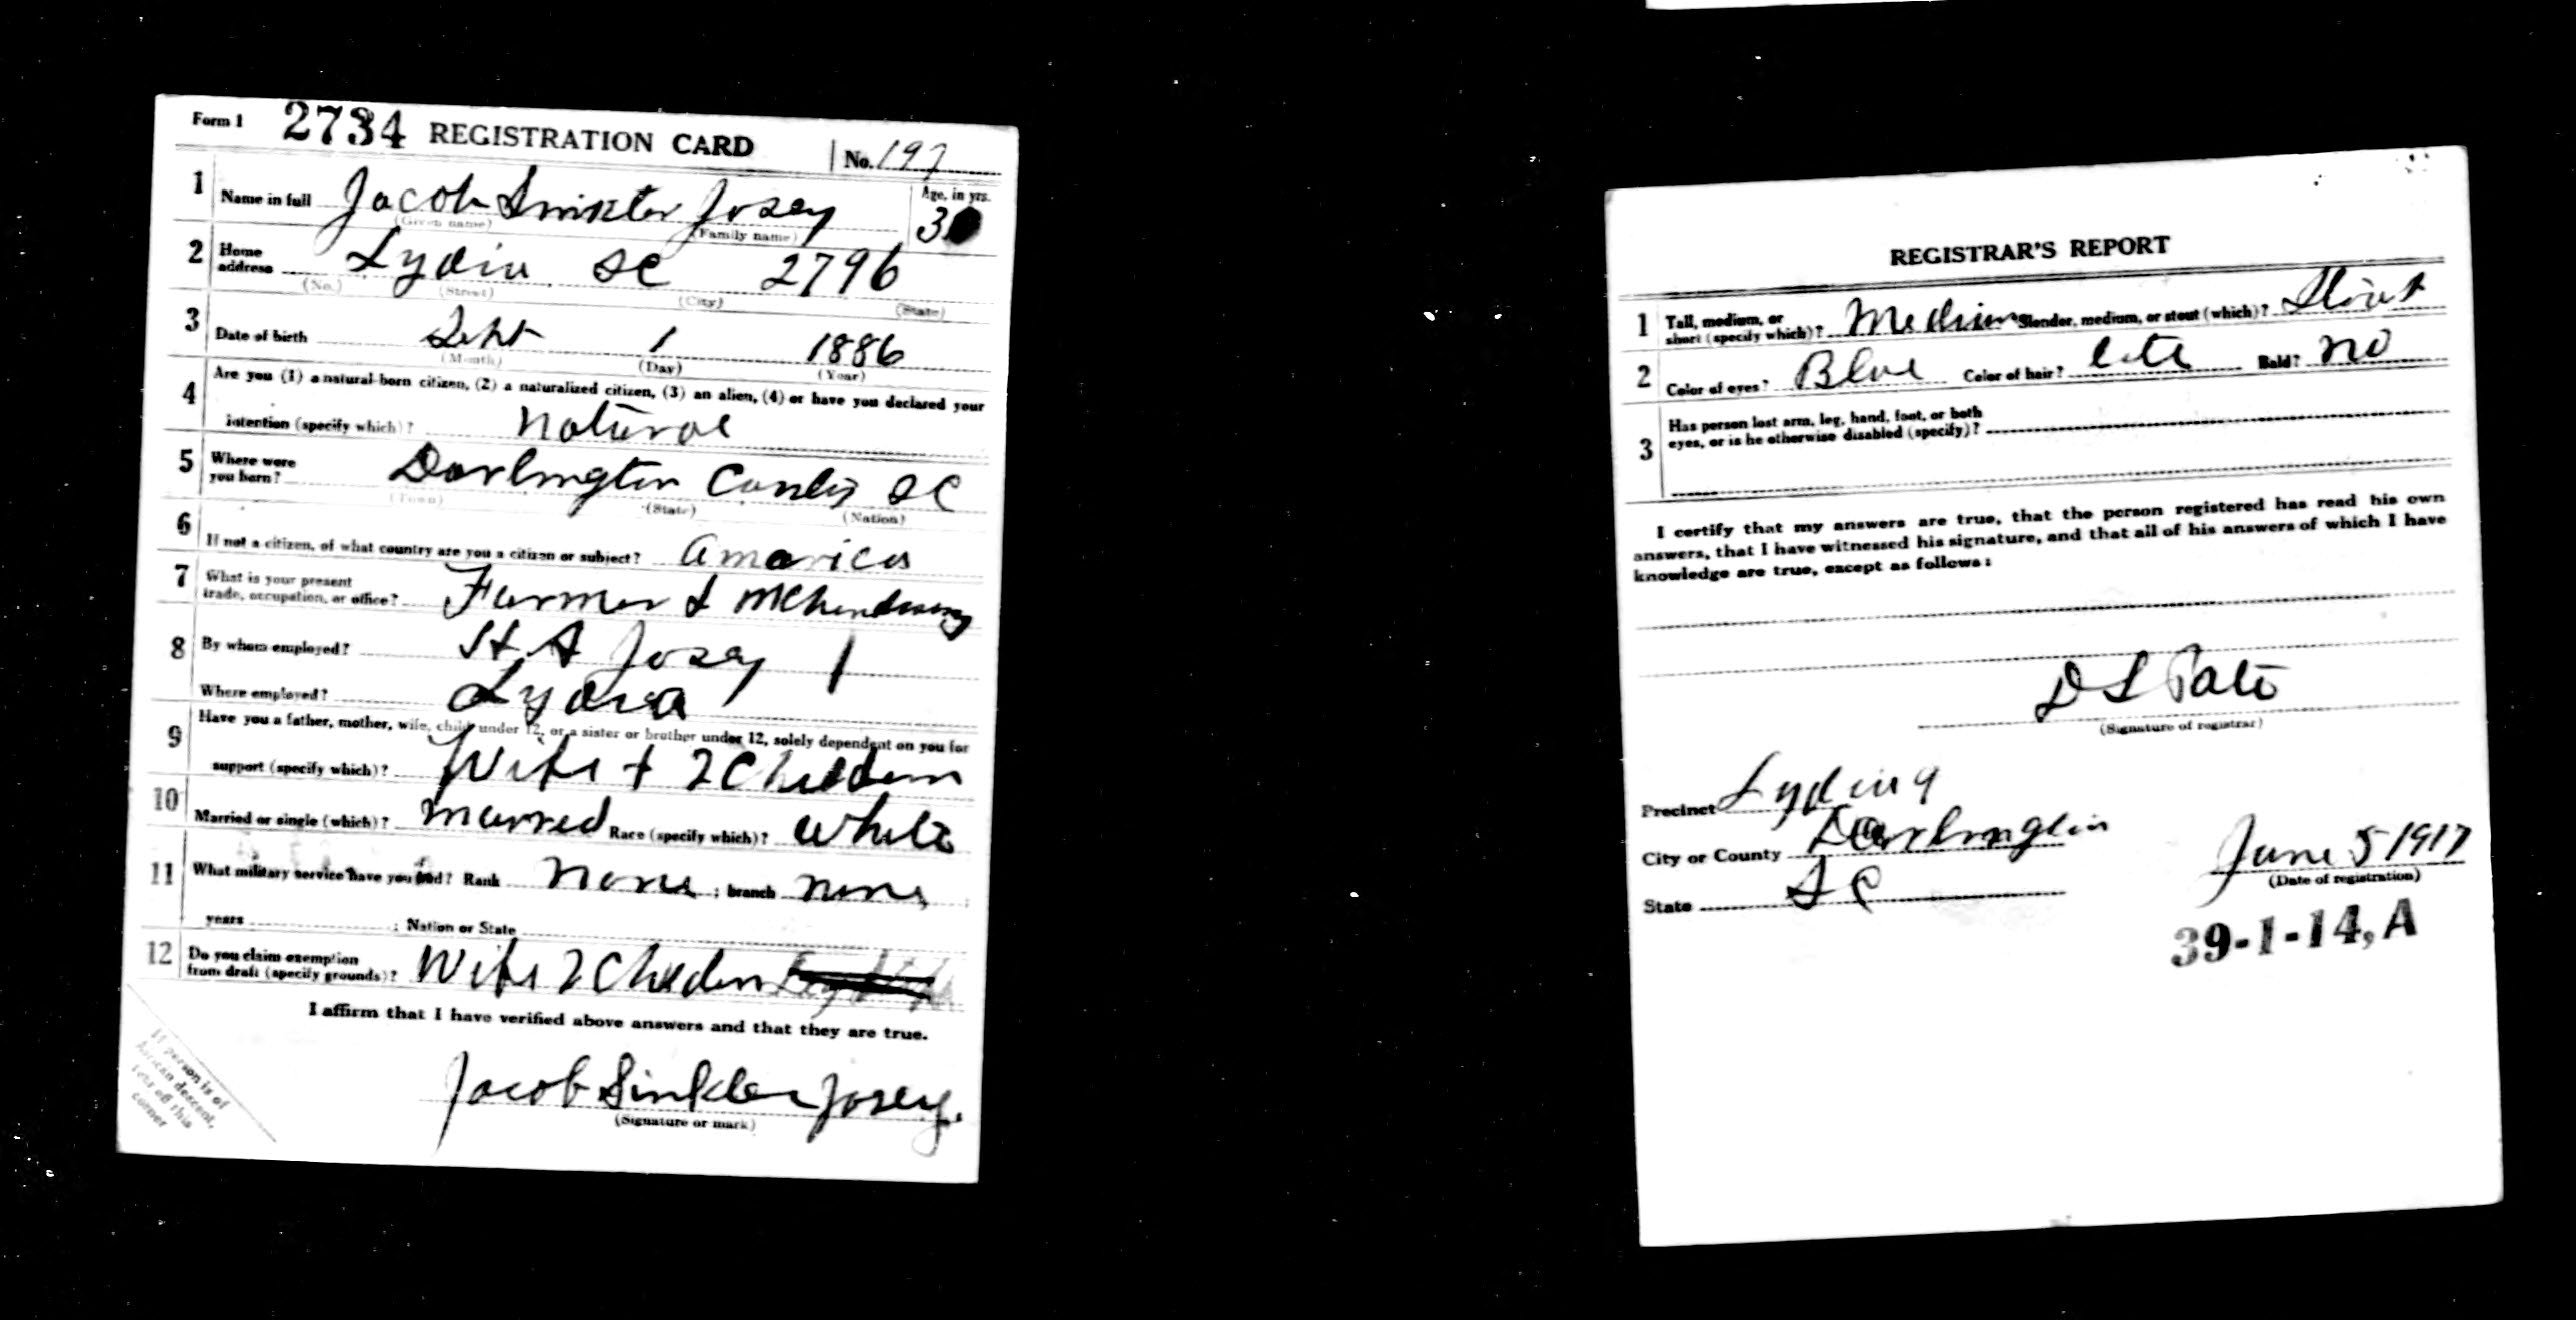 Form 1 2734 REGISTRATION CARD No. 197
1 Name in full Jacob Sinkler Josey Age, in yrs.
(Given name) (Family name) 30
2 Home address Lydia SC 2796
(No.) (Street) (City) (State)
3 Date of birth Sept 1 1886
(Month) (Day) (Year)
4 Are you (1) a natural-born citizen, (2) a naturalized citizen, (3) an alien, (4) or have you declared your
intention (specify which)? Natural
5 Where were you born? Darlington County SC
(Town) (State) (Nation)
6 If not a citizen, of what country are you a citizen or subject? America
7 What is your present
trade, occupation, or office? Farmer &
8 By whom employed? Josey
Where employed? Lydia
9 Have you a father, mother, wife, child under 12, or a sister or brother under 12, solely dependent on you for
support (specify which)? Wife + 2 Children
10 Married or single (which)? Married Race (specify which)? White
11 What military service have you had? Rank None ; branch None
years ; Nation or State
12 Do you claim exemption
from draft (specify grounds)? Wife 2 Children
I affirm that I have verified above answers and that they are true.
Jacob Sinkler Josey.
(Signature or mark)
If person is of
African descent,
tear off this
corner
REGISTRAR'S REPORT
1 Tall, medium, or
short (specify which)? Medium Slender, medium, or stout (which)? Stout
2 Color of eyes? Blue Color of hair? Bald? No
3 Has person lost arm, leg, hand, foot, or both
eyes, or is he otherwise disabled (specify)?
I certify that my answers are true, that the person registered has read his own
answers, that I have witnessed his signature, and that all of his answers of which I have
knowledge are true, except as follows:
D L Pate
(Signature of registrar)
Precinct Lydia 9
City or County Darlington
State SC
June 5 1917
(Date of registration)
39-1-14, A